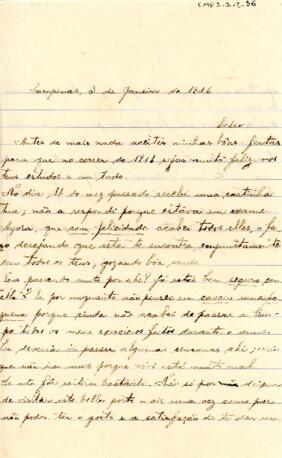 CMP 2.2.2.96
Campinas, 3 de Janeiro de 1916
Antes de mais nada acceites minhas bôas festas
para que no correr de 1916 sejas muito feliz nos
teus estudos e em tudo.
No dia 16 do mez passado recebi uma cartinha
tua; não a respondi porque estava em exame
Agora, que com felicidade acabei todos elles, o fa
ço desejando que esta te encontre conjunctamente
com todos os teus, gozando bôa saude.
Tens passeado muito por ahi? Já estás bem seguro com
ella? Eu por emquanto não penso em
porque ainda não acabei de passar a lim
po todos os meus exercicios feitos durante o anno.
Eu deveria ir passar algumas semanas ahi,
que não irei mais porque vóvó está muito mal.
de isto fóra sentirei bastante. Não só por deixar
de visitar este bello porto mais uma vez como por
não poder ter o gosto e a satisfação de te dar um